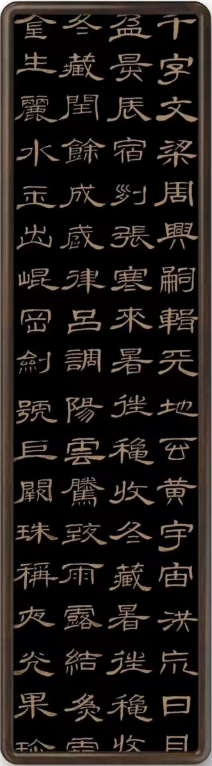 千字文梁周興嗣輯天地玄黃宇宙洪荒日月
盈昃辰宿列張寒來暑往穐收冬藏暑往穐收
冬藏閏餘成歲律呂調陽雲騰致雨露結為霜
金生麗水玉出崐岡劍號巨闕珠稱夜光果珍